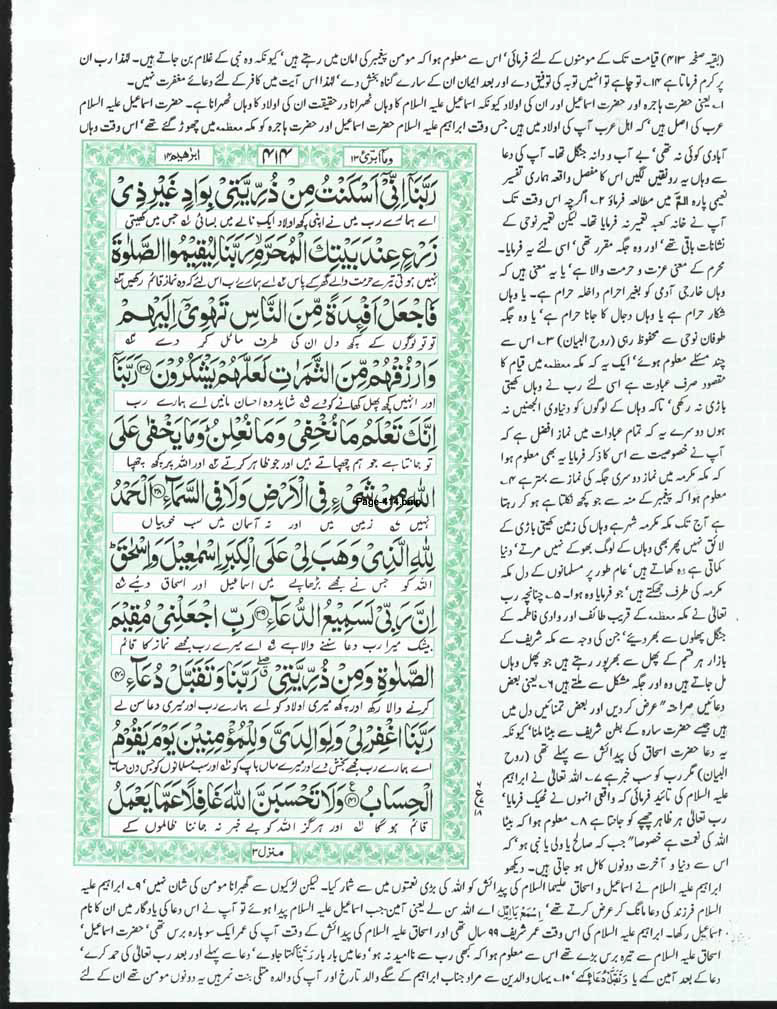 (بقیہ صفحہ ۴۱۳) قیامت تک کے مومنوں کے لئے فرمائی' اس سے معلوم ہوا کہ مومن پیغمبر کی امان میں رہتے ہیں' کیونکہ وہ نبی کے غلام بن جاتے ہیں۔ لہٰذا رب ان
پر کرم فرماتا ہے ۱۴۔ تو چاہے تو انہیں توبہ کی توفیق دے اور بعد ایمان ان کے سارے گناہ بخش دے' لہٰذا اس آیت میں کافر کے لئے دعائے مغفرت نہیں۔
۱۔ یعنی حضرت ہاجرہ اور حضرت اسماعیل اور ان کی اولاد کیونکہ اسماعیل علیہ السلام کا وہاں ٹھہرانا درحقیقت ان کی اولاد کا وہاں ٹھہرانا ہے۔ حضرت اسماعیل علیہ السلام
عرب کی اصل ہیں' کہ اہل عرب آپ کی اولاد میں ہیں جس وقت ابراہیم علیہ السلام حضرت اسماعیل اور حضرت ہاجرہ کو مکہ معظمہ میں چھوڑ گئے تھے' اس وقت وہاں
آبادی کوئی نہ تھی' بے آب و دانہ جنگل تھا۔ آپ کی دعا
سے وہاں یہ رونقیں لگیں اس کا مفصل واقعہ ہماری تفسیر
نعیمی پارہ الٓمّ میں مطالعہ فرماؤ ۲۔ اگرچہ اس وقت تک
آپ نے خانہ کعبہ تعمیر نہ فرمایا تھا۔ لیکن تعمیر نوحی کے
نشانات باقی تھے' اور وہ جگہ مقرر تھی' اسی لئے یہ فرمایا۔
محرم کے معنی عزت و حرمت والا ہے' یا یہ معنی ہیں کہ
وہاں خارجی آدمی کو بغیر احرام داخلہ حرام ہے۔ یا وہاں
شکار حرام ہے یا وہاں دجال کا جانا حرام ہے' یا وہ جگہ
طوفان نوحی سے محفوظ رہی (روح البیان) ۳۔ اس سے
چند مسئلے معلوم ہوئے' ایک یہ کہ مکہ معظمہ میں قیام کا
مقصود صرف عبادت ہے اسی لئے رب نے وہاں کھیتی
باڑی نہ رکھی' تاکہ وہاں کے لوگوں کو دنیاوی الجھنیں نہ
ہوں دوسرے یہ کہ تمام عبادات میں نماز افضل ہے کہ
آپ نے خصوصیت سے اس کا ذکر فرمایا یہ بھی معلوم ہوا
کہ مکہ مکرمہ میں نماز دوسری جگہ کی نماز سے بہتر ہے ۴۔
معلوم ہوا کہ پیغمبر کے منہ سے جو کچھ نکلتا ہے ہو کر رہتا
ہے آج تک مکہ مکرمہ شہر ہے وہاں کی زمین کھیتی باڑی کے
لائق نہیں پھر بھی وہاں کے لوگ بھوکے نہیں مرتے' دنیا
کماتی ہے وہ کھاتے ہیں' عام طور پر مسلمانوں کے دل مکہ
مکرمہ کی طرف جھکتے ہیں' جو فرمایا وہ ہوا۔ ۵۔ چنانچہ رب
تعالٰی نے مکہ معظمہ کے قریب طائف اور وادی فاطمہ کے
جنگل پھلوں سے بھر دیئے' جن کی وجہ سے مکہ شریف کے
بازار ہر قسم کے پھل سے بھرپور رہتے ہیں جو پھل وہاں
مل جاتے ہیں وہ اور جگہ مشکل سے ملتے ہیں ۶۔ یعنی بعض
دعائیں صراحۃً عرض کر دیں اور بعض تمنائیں دل میں
ہیں جیسے حضرت سارہ کے بطن شریف سے بیٹا ملنا' کیونکہ
یہ دعا حضرت اسحاق کی پیدائش سے پہلے تھی (روح
البیان) مگر رب کو سب خبر ہے ۷۔ اللہ تعالٰی نے ابراہیم
علیہ السلام کی تائید فرمائی کہ واقعی انہوں نے ٹھیک فرمایا'
رب تعالٰی ہر ظاہر چھپے کو جانتا ہے ۸۔ معلوم ہوا کہ بیٹا
اللہ کی نعمت ہے خصوصاً جب کہ صالح یا ولی یا نبی ہو' کہ
اس سے دنیا و آخرت دونوں کامل ہو جاتی ہیں۔ دیکھو
وما ابرئ ۱۳
۴۱۴
ابرٰھیم ۱۴
رَبَّنَآ اِنِّیْٓ اَسْكَنْتُ مِنْ ذُرِّیَّتِیْ بِوَادٍ غَیْرِ ذِیْ
اے ہمارے رب میں نے اپنی کچھ اولاد ایک نالے میں بسائی ۱ جس میں کھیتی
زَرْعٍ عِنْدَ بَیْتِكَ الْمُحَرَّمِۙ رَبَّنَا لِیُقِیْمُوا الصَّلٰوةَ
نہیں ہوتی تیرے حرمت والے گھر کے پاس ۲ اے ہمارے رب اس لئے کہ وہ نماز قائم رکھیں ۳
فَاجْعَلْ اَفْىِٕدَةً مِّنَ النَّاسِ تَهْوِیْۤ اِلَیْهِمْ
تو تو لوگوں کے کچھ دل ان کی طرف مائل کر دے ۴
وَارْزُقْهُمْ مِّنَ الثَّمَرٰتِ لَعَلَّهُمْ یَشْكُرُوْنَ ﴿۳۷﴾ رَبَّنَآ
اور انہیں کچھ پھل کھانے کو دے ۵ شاید وہ احسان مانیں اے ہمارے رب
اِنَّكَ تَعْلَمُ مَا نُخْفِیْ وَمَا نُعْلِنُؕ وَمَا یَخْفٰی عَلَی
تو جانتا ہے جو ہم چھپاتے ہیں اور جو ظاہر کرتے ۶ اور اللہ پر کچھ چھپا
اللّٰهِ مِنْ شَیْءٍ فِی الْاَرْضِ وَلَا فِی السَّمَآءِ ﴿۳۸﴾ اَلْحَمْدُ
نہیں ۷ زمین میں اور نہ آسمان میں سب خوبیاں
Page-414.bmp
لِلّٰهِ الَّذِیْ وَهَبَ لِیْ عَلَی الْكِبَرِ اِسْمٰعِیْلَ وَاِسْحٰقَؕ
اللہ کو جس نے مجھے بڑھاپے میں اسماعیل اور اسحاق دیئے ۸
اِنَّ رَبِّیْ لَسَمِیْعُ الدُّعَآءِ ﴿۳۹﴾ رَبِّ اجْعَلْنِیْ مُقِیْمَ
بیشک میرا رب دعا سننے والا ہے ۹ اے میرے رب مجھے نماز کا قائم
الصَّلٰوةِ وَمِنْ ذُرِّیَّتِیْ ۖ رَبَّنَا وَتَقَبَّلْ دُعَآءِ ﴿۴۰﴾
کرنے والا رکھ اور کچھ میری اولاد کو اے ہمارے رب اور میری دعا سن لے
رَبَّنَا اغْفِرْ لِیْ وَلِوَالِدَیَّ وَلِلْمُؤْمِنِیْنَ یَوْمَ یَقُوْمُ
اے ہمارے رب مجھے بخش دے اور میرے ماں باپ کو ۱۰ اور سب مسلمانوں کو جس دن حساب
الْحِسَابُ ﴿۴۱﴾ وَلَا تَحْسَبَنَّ اللّٰهَ غَافِلًا عَمَّا یَعْمَلُ
قائم ہو گا اور ہرگز اللہ کو بے خبر نہ جاننا ظالموں کے
ع
۱۸
منزل ۳
ابراہیم علیہ السلام نے اسماعیل و اسحاق علیہما السلام کی پیدائش کو اللہ کی بڑی نعمتوں میں سے شمار کیا۔ لیکن لڑکیوں سے گھبرانا مومن کی شان نہیں' ۹۔ ابراہیم علیہ
السلام فرزند کی دعا مانگ کر عرض کرتے تھے' اِسْمَعْ یَا اِیْل اے اللہ سن لے یعنی آمین جب اسماعیل علیہ السلام پیدا ہوئے تو آپ نے اس دعا کی یادگار میں ان کا نام
اسماعیل رکھا۔ ابراہیم علیہ السلام کی اس وقت عمر شریف ۹۹ سال تھی اور اسحاق علیہ السلام کی پیدائش کے وقت آپ کی عمر ایک سو بارہ برس تھی' حضرت اسماعیل'
اسحاق علیہ السلام سے تیرہ برس بڑے تھے اس سے معلوم ہوا کہ کبھی رب سے ناامید نہ ہو' دعا میں بار بار رَبَّنَا کہتا جاوے' دعا سے پہلے اور بعد رب تعالٰی کی حمد کرے'
دعا کے بعد آمین کہے یا وَتَقَبَّلْ دُعَآءِ کہے' ۱۰۔ یہاں والدین سے مراد جناب ابراہیم کے سگے والد تارخ اور آپ کی والدہ متلی بنت نمر ہیں یہ دونوں مومن تھے ان کے لئے